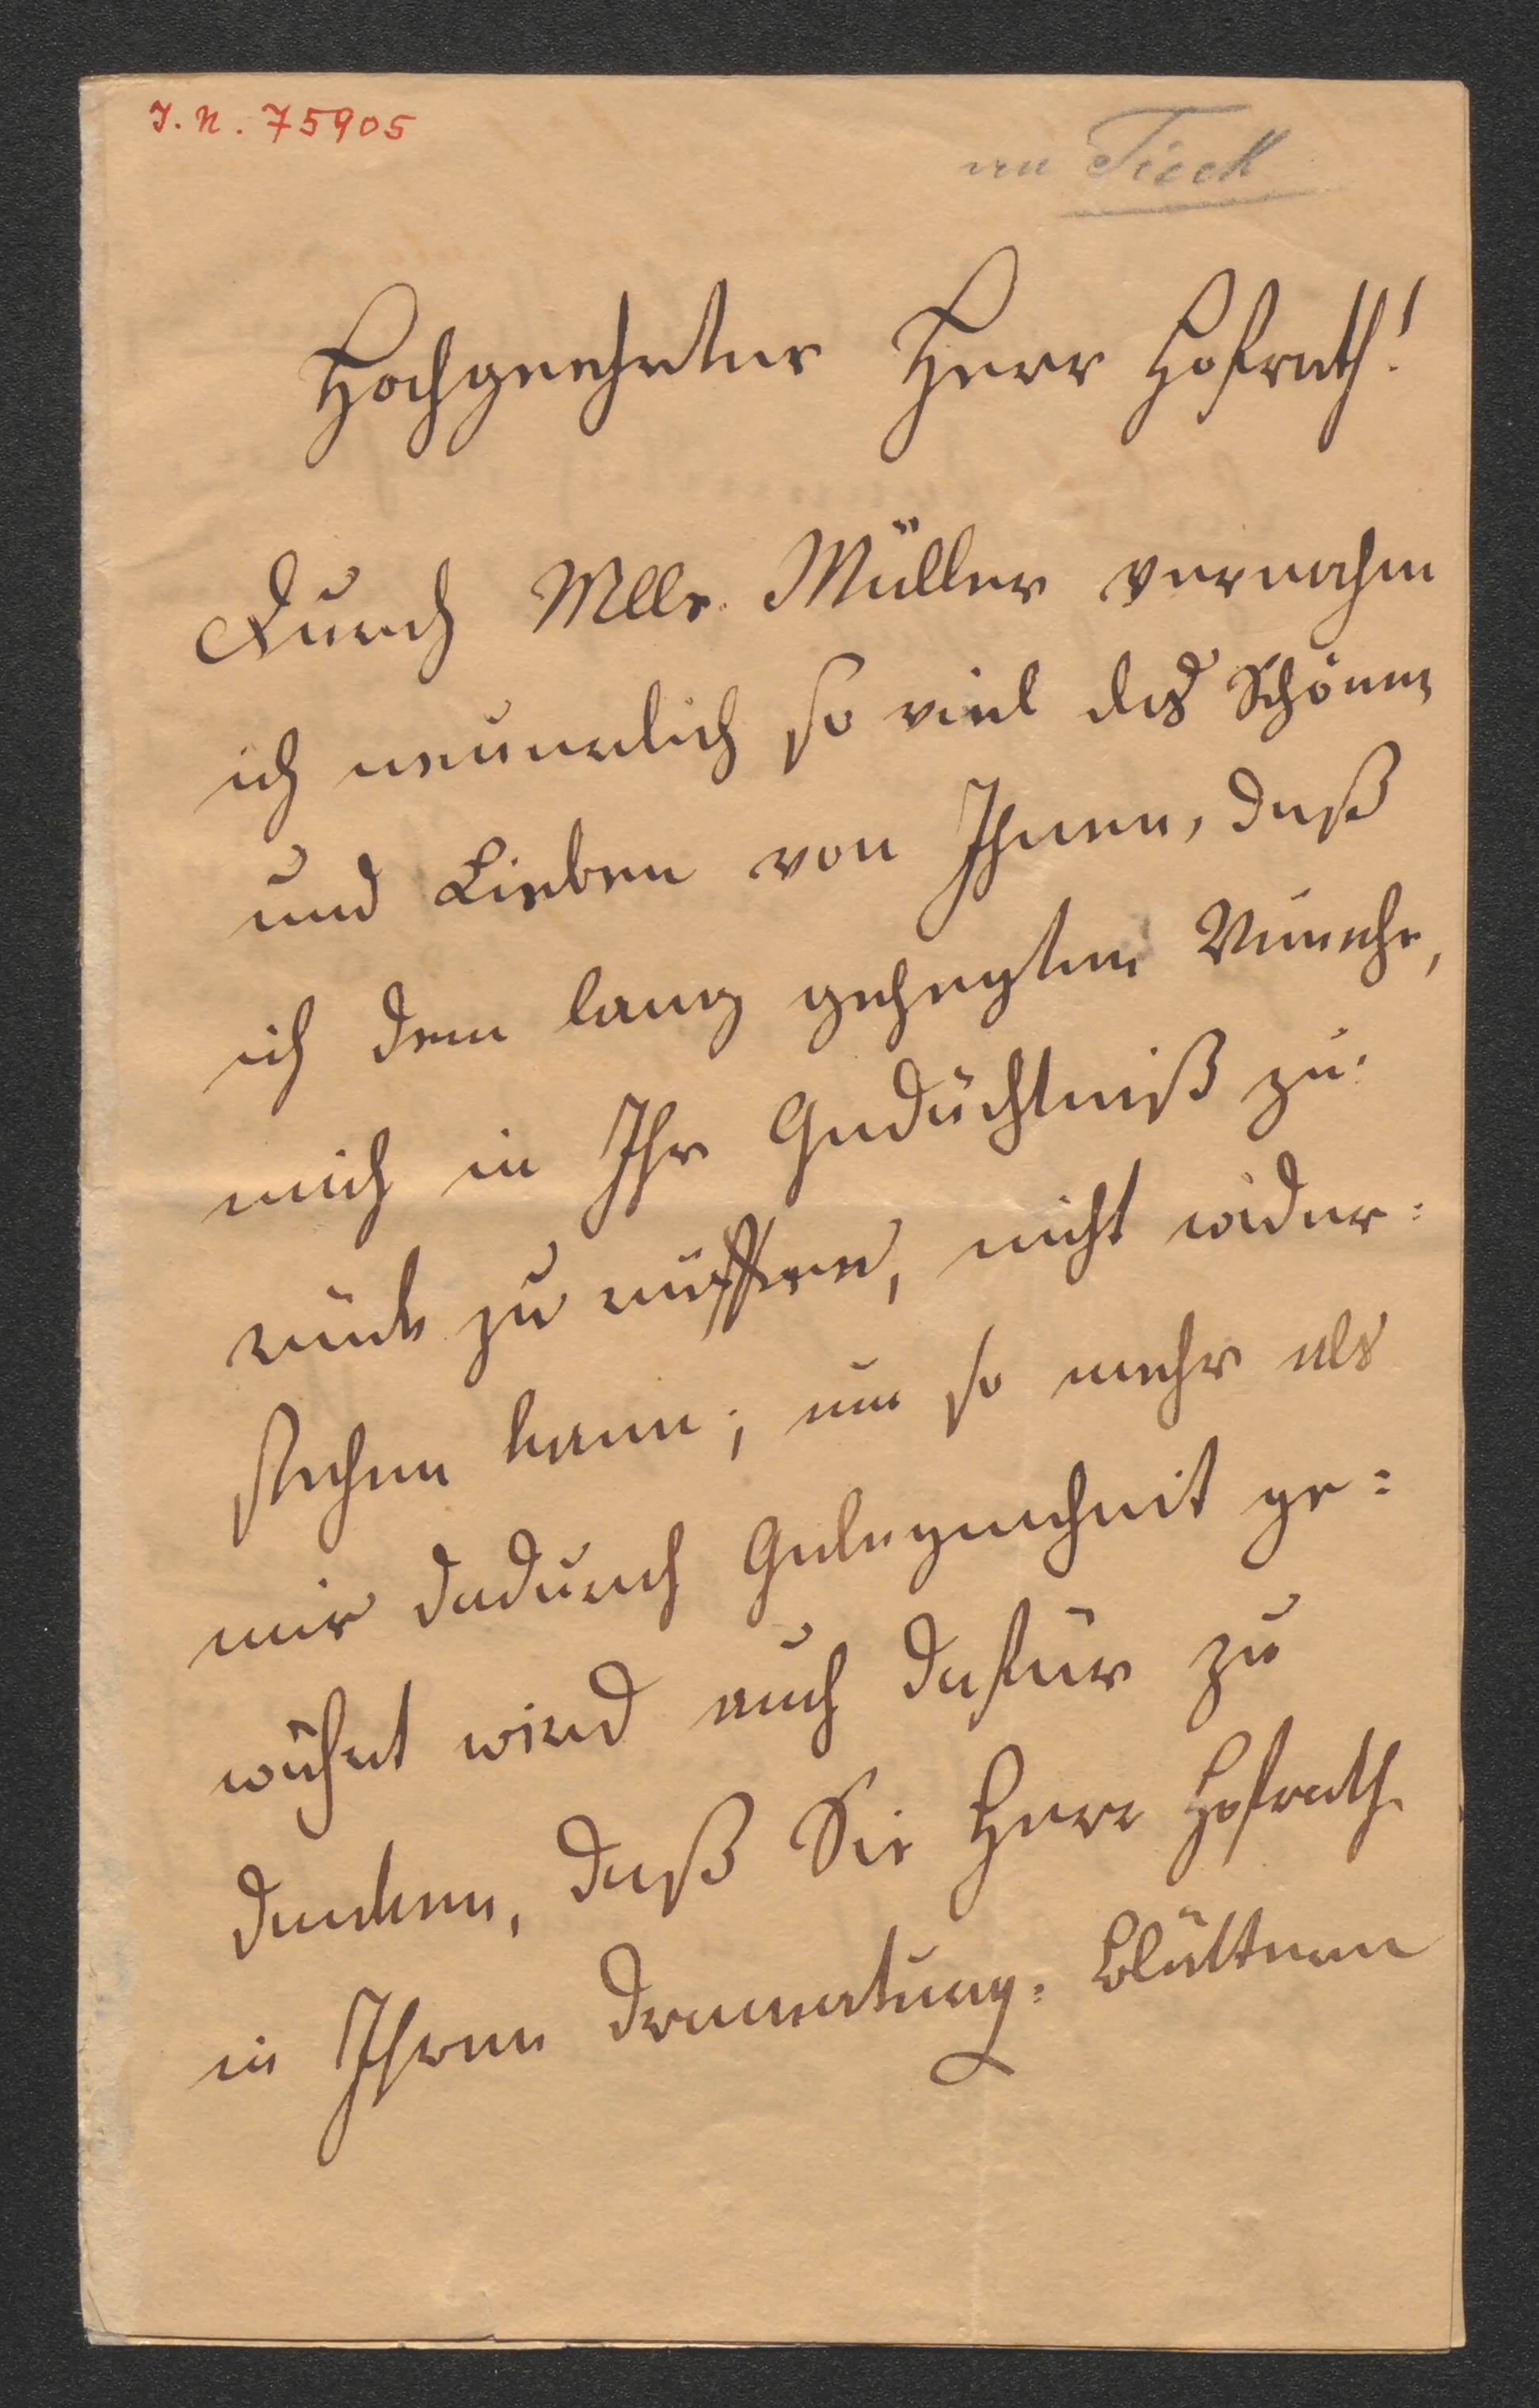 J. N. 75905
an Tieck
Hochgeehrter Herr Hofrath!
Durch Mlle. Müller vernahm
ich neuerlich so viel des Schönen
und Lieben von Ihnen, daß
ich dem lang gehegten Wunsche,
mich in Ihr Gedächtniß zu-
rück zu ruffen, nicht wider=
stehen kann; um so mehr als
mir dadurch Gelegenheit ge=
währt wird auch dafür zu
danken, daß Sie Herr Hofrath
in Ihren dramaturg: Blättern